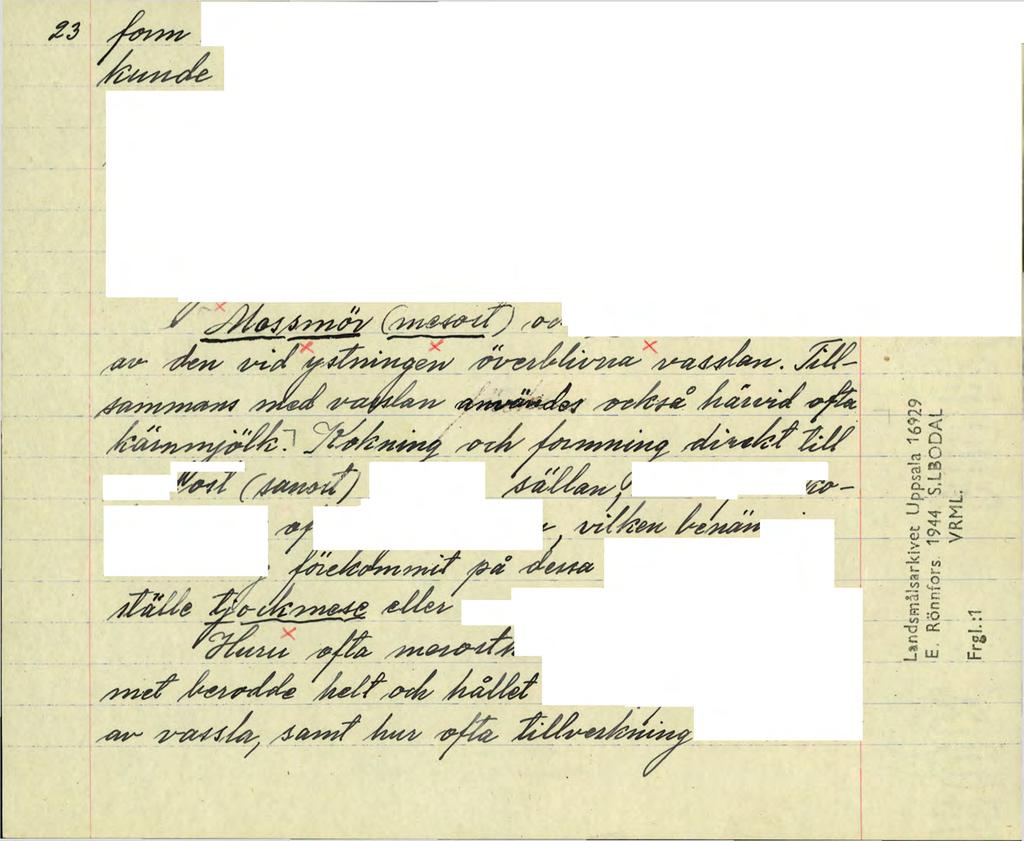 23 form
kunde
Mossmör (mesost)
av den vid ystningen överblivna vasslan. Till-
sammans med vasslan användes också härvid ofta
kärnmjölk. Kokning och formning direkt till
ost (sanost) sällan,
vilken benäm
förekommit på dessa
ställe tjockmese eller
Huru ofta mesost
met berodde helt och hållet
av vassla, samt hur ofta tillverkning
Landsmålsarkivet Uppsala 16929
E. Rönnfors. 1944 S.LBODAL
VRML.
Frgl.:1